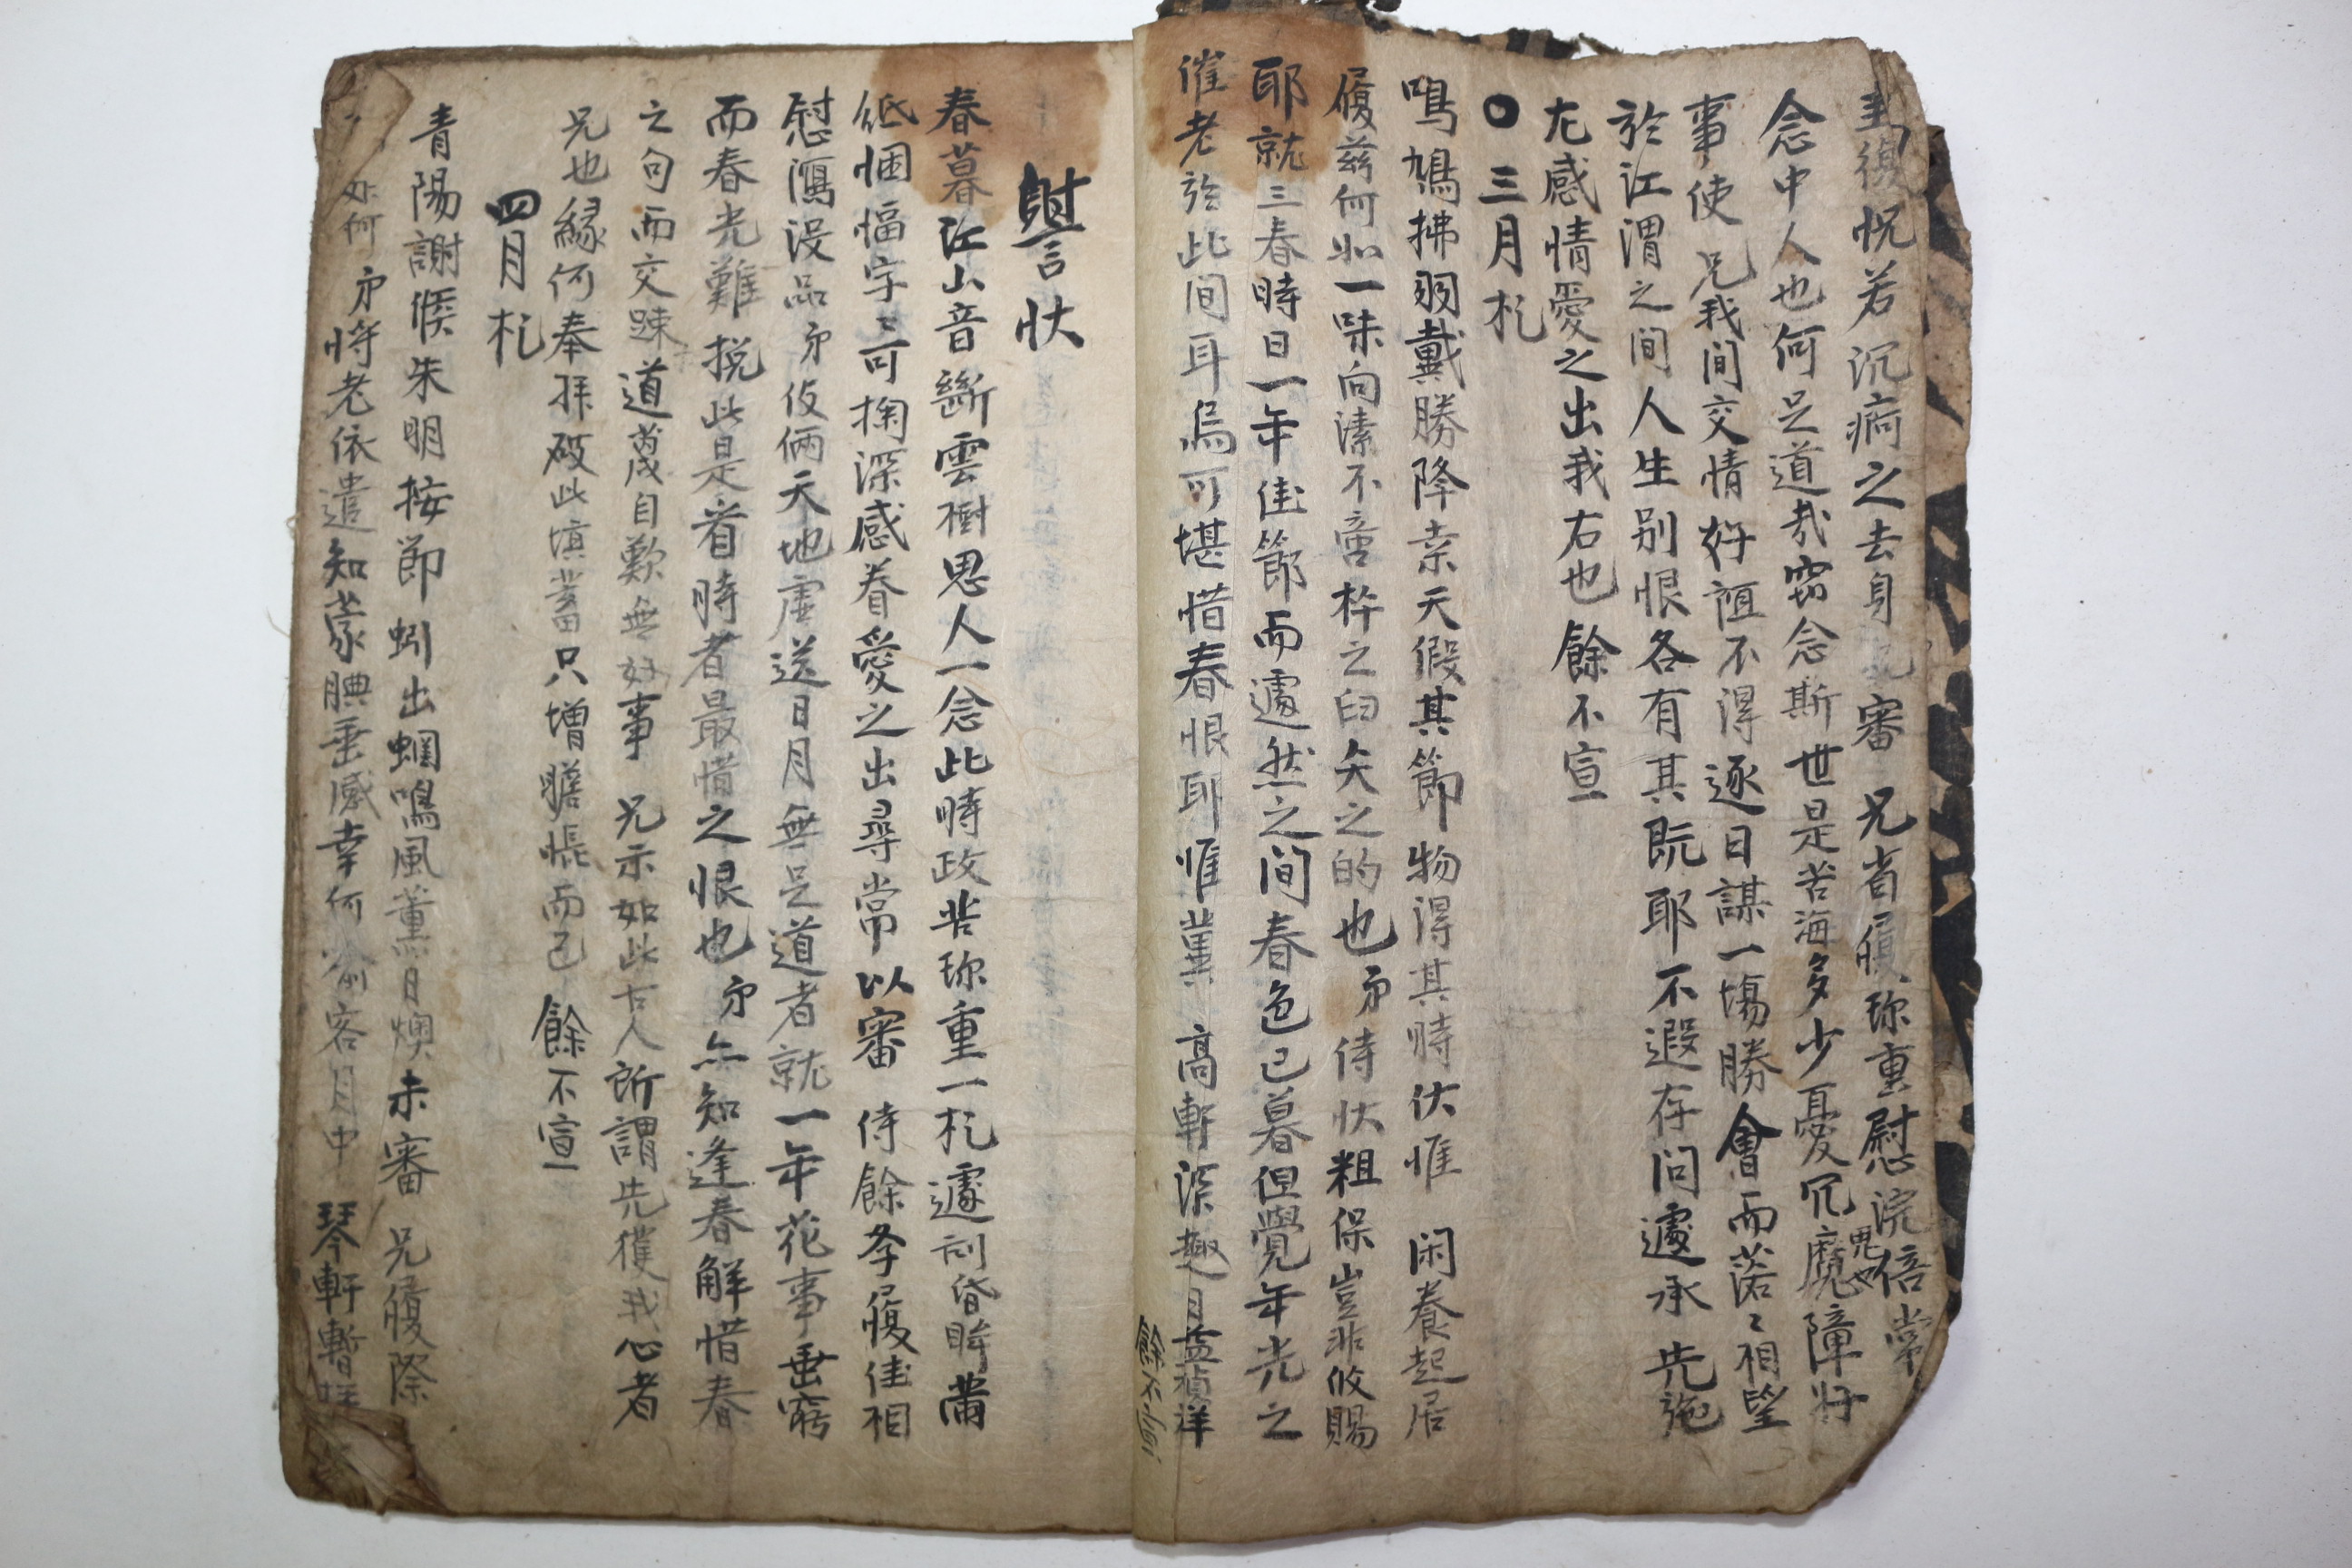 復怳若沉痾之去身 審 兄省履珎重慰浣倍常
念中人也何足道哉窃念斯世是苦海多少憂冗魔障好
鬼也
事使 兄我間交情好誼不得逐日謀一塲勝會而落〻相望
於江渭之間人生别恨各有其既耶不遐存问遽承 先施
尤感情愛之出我右也 餘不宣
〇三月札
鳴鳩拂羽戴勝降桒天假其節物得其時伏惟 閑養起居
履玆何如一味向溸不啻杵之臼矢之的也 㐧侍狀粗保豈非攸賜
耶就三春時日一年佳節而遽然之间春色已暮但覺年光之
催老於此间耳烏可堪惜春恨耶惟冀 高軒深趣月益禎祥
餘不備
謝狀
春暮江山音斷雲樹思人一念此時政苦珎重一札遽刮昏眸滿
紙悃愊字〻可掬深感眷愛之出尋常以審 侍餘孝履佳相
慰瀉没品 㐧伎倆天地虛送日月無足道者就一年花事垂窮
而春光難挽此是看時者最惜之恨也 㐧亦知逢春解惜春
之句而交踈道蔑自歎無好事 兄示如此古人所謂先獲我心者
兄也緣何奉拜破此塡蓄只增瞻悵而已 餘不宣
四月札
青陽謝候朱明按節蚓出蟈鳴風薰日燠未審 兄履際
如何 㐧將老依遣知蒙腆垂感幸何喻客月中 琴軒暫